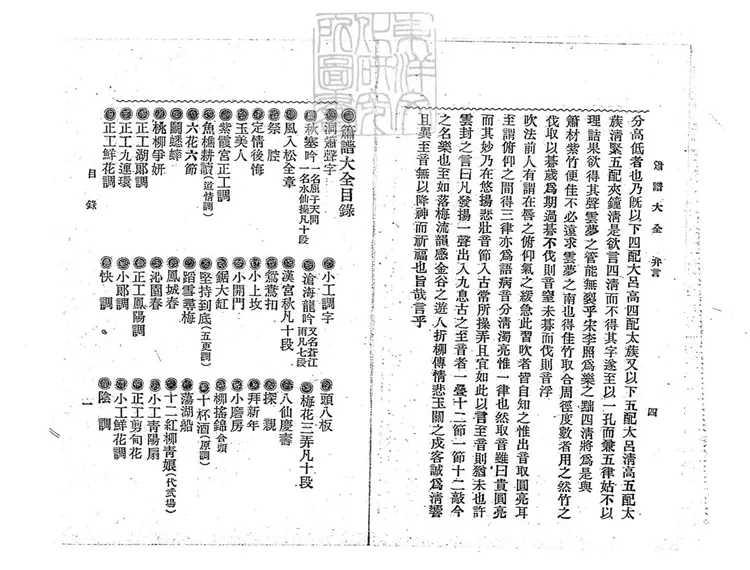 簫譜大全 弁言
分高低者也乃旣以下四配大呂高四配太蔟又以下五配大呂淸高五配太
蔟淸緊五配夾鐘淸是欲言四淸而不得其字遂至以一孔而兼五律姑不以
理詰果欲得其聲雲夢之管能無裂乎宋李照爲樂之蠹四淸將爲是與
簫材紫竹便佳不必遠求雲夢之南也得佳竹取合周徑度數者用之然竹之
伐取以朞歲爲期過朞不伐則音窒未朞而伐則音浮
吹法前人有謂在唇之俯仰氣之緩急此習吹者皆自知之惟出音取圓亮耳
至謂俯仰之間得三律亦爲語病音分淸濁亮惟一律也然取音雖曰貴圓亮
而其妙乃在悠揚悲壯音節入古常所操弄且宜如此以言至音則猶未也許
雲封之言曰凡發揚一聲出入九息古之至音者一疊十二節一節十二敲今
之名樂也至如落梅流韻感金谷之遊人折柳傳情悲玉關之戍客誠爲淸響
且異至音無以降神而祈福也旨哉言乎
四
簫譜大全目錄
洞簫聲字
小工調字
頭八板
秋塞吟 一名屈子天問 一名水仙操凡十段
滄海龍吟 又名蒼江雨凡七段
梅花三弄凡十段
風入松全章
漢宮秋凡十段
八仙慶壽
祭腔
鴛鴦扣
探親
定情後悔
小上坟
拜新年
玉美人
小開門
小磨房
紫霞宮正工調
鋸大缸
柳搖錦 合頭
魚樵耕讀(道情調)
堅持到底(五更調)
十杯酒(原調)
六花六節
踏雪尋梅
蕩湖船
鬭蟋蟀
鳳城春
十二紅柳靑娘(代武場)
桃柳爭姸
沁園春
小工靑陽扇
正工湖郞調
正工鳳陽調
正工剪甸花
正工九連環
小郞調
小工鮮花調
正工鮮花調
快調
陰調
目錄
一